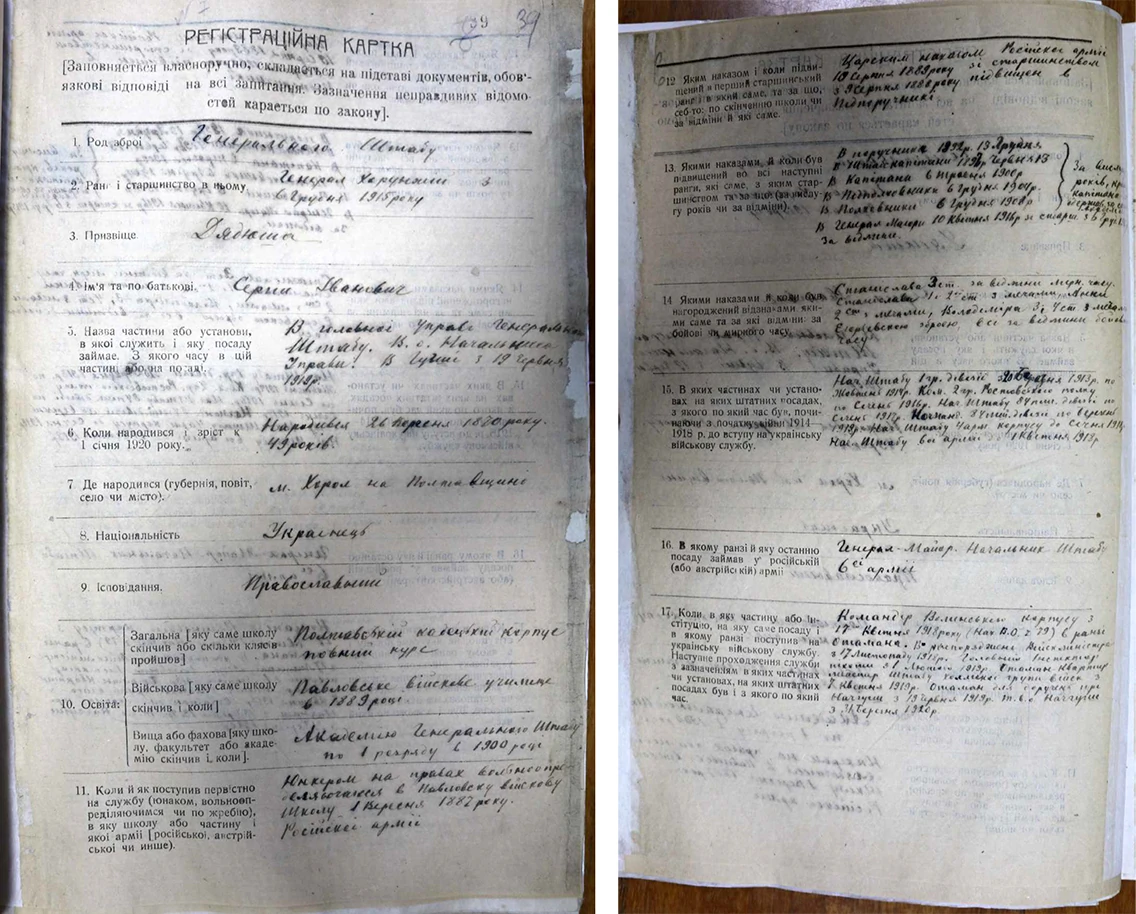 39
РЕГІСТРАЦІЙНА КАРТКА
[Заповняється власноручно, складається на підставі документів, обов'-
язкові відповіді на всі запитання. Зазначення неправдивих відомо-
стей карається по закону].
1. Род зброї Генерального Штабу
2. Ранг і старшинство в ньому. Генерал Хорунжий з
6 Грудня 1915 року
3. Призвіще Дядюша
4. Ім'я та по батькові. Сергій Іванович
5. Назва частини або установи,
в якої служить і яку посаду
займає. З якого часу в цій
частині або на посаді.
В головної Управі Генерального
Штабу. В. о. Начальника
Управи. В з 19 Червня
1919р.
6 Коли народився і зріст к
1 січня 1920 року.
Народився 26 Вересня 1870 року.
49 років.
7 Де народився (губернія, повіт,
село чи місто).
м. Хорол на Полтавщині
8. Національність Українець
9. Ісповідання. Православний
10. Освіта:
Загальна [яку саме школу
скінчив або скільки клясів
пройшов]
Полтавський кадецький корпус
повний курс
Військова [яку саме школу
скінчив і коли]
Павловське військове училище
в 1889 році
Вища або фахова [яку шко-
лу, факультет або акаде-
мію скінчив і коли].
Академию Генерального Штабу
по 1 розряду в 1900 році
11. Коли й як поступив первістно
на службу (юнаком, вольнооп-
реділяючимся чи по жребію),
в яку школу або частину і
якої армії [російської, австрій-
ської чи инше).
Юнкером на правах вольноопре-
деляючагося в Павловску військову
Школу 1 Вересня 1887 року.
Російскої армії
12 Яким наказом і коли підви-
щений в перший старшинський
ранг і в який саме, та за що,
себ-то: по скінченню школи чи
за відміни й які саме.
Царським наказом Російскої армії
10 Серпня 1889 року зі старшинством
з 9 Серпня 1888 року підвищен в
Підпоручники
13. Якими наказами, й коли був
підвищений во всі наступні
ранги, які саме, з яким стар-
шинством та за що (за вислу-
гу років чи за відміни).
В поручники
В Штабс-капітани Червня 13
В Капітана 1900р.
В Підполковники 6 Грудня 1904р.
В Полковники 6 Грудня 1908р.
В Генерал Майори 10 Квітня 1916р зі старш. з 6 Грудня
За відміни.
14 Якими наказами й коли був
нагороджений відзнаками яки-
ми саме та за які відміни за
бойові чи мирного часу.
Станислава 3 ст. за відміни мирн. часу.
Станіслава й 2 ст з мечами, Анни
2 ст з мечами, Володимира 3 і 4 ст. з мечами
Георгієвською зброєю, всі за відміни
часу.
15. В яких частинах чи устано-
вах на яких штатних посадах,
з якого по який час був, почи-
наючи з початку війни 1914—
1918 р. до вступу на українську
військову службу.
Нач. Штабу 1 гр. дівізії 1913р. по
Ком. 2 гр. Ростовського полку
по Січень 1916р. Нач. Штабу дівізії по
Січень 1917р. дівізії по
Нач. Штабу корпусу до Січня
Нач. Штабу 6ої армії 1 Квітня 1918р.
16. В якому ранзі й яку останню
посаду займав у російській
(або австрійській) армії
Генерал-Майор. Начальник Штабу
6ої армії
17. Коли, в яку частину або ін-
стітуцію, на яку саме посаду і
в якому ранзі поступив на
українську військову службу.
Наступне проходження служби
з зазначенням в яких частинах
чи установах, на яких штатних
посадах був і з якого по який
час.
Командір Волинського корпусу з
17 Квітня 1918 року (Нак В.О. ч 79) в ранзі
Отамана. В Військміністра
з 17 Листопаду 1918р. Головний Інспектор
з 1 Лютого 1919р. Отаман Квартир
мейстер Штабу групи військ з
Квітня 1919р. Отаман для доручен при
Начгушу з 19 Червня 1919р. т.в.о. Начгуша
з 1920р.